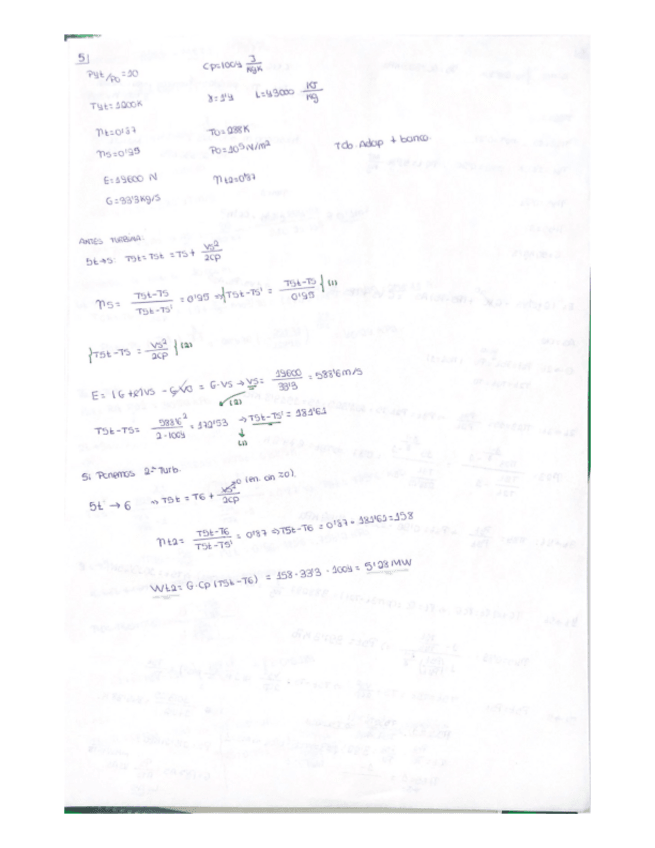 5|
P4t/P0 = 10    Cp=1004 J/KgK
T4t=1200K    γ=1'4    L=43000 KJ/Kg
ηt=0'87    T0=288K
η5=0'95    P0=10^5 N/m²    Tob Adap + banco.
E=19600 N    ηt2=0'87
G=33'3Kg/s
ANTES TURBINA:
5t→5: T5t=T5t = T5 + V5²/2Cp
η5 = (T5t-T5)/(T5t-T5') = 0'95 ⇒ {T5t-T5' = (T5t-T5)/0'95} (1)
{T5t-T5 = V5²/2Cp} (2)
E= (G+c)V5 - GV0 = G·V5 → V5 = 19600/33'3 = 588'6 m/s
(2)
T5t-T5= 588'6²/(2·1004) = 172'53 → T5t-T5' = 181'61
(1)
Si Ponemos 2ª Turb.
5t → 6 ⇒ T5t = T6 + V6²/2Cp →0 (en. an =0).
ηt2= (T5t-T6)/(T5t-T5') = 0'87 ⇒ T5t-T6 = 0'87 · 181'61=158
Wt2= G·Cp (T5t-T6) = 158·33'3·1004 = 5'28 MW